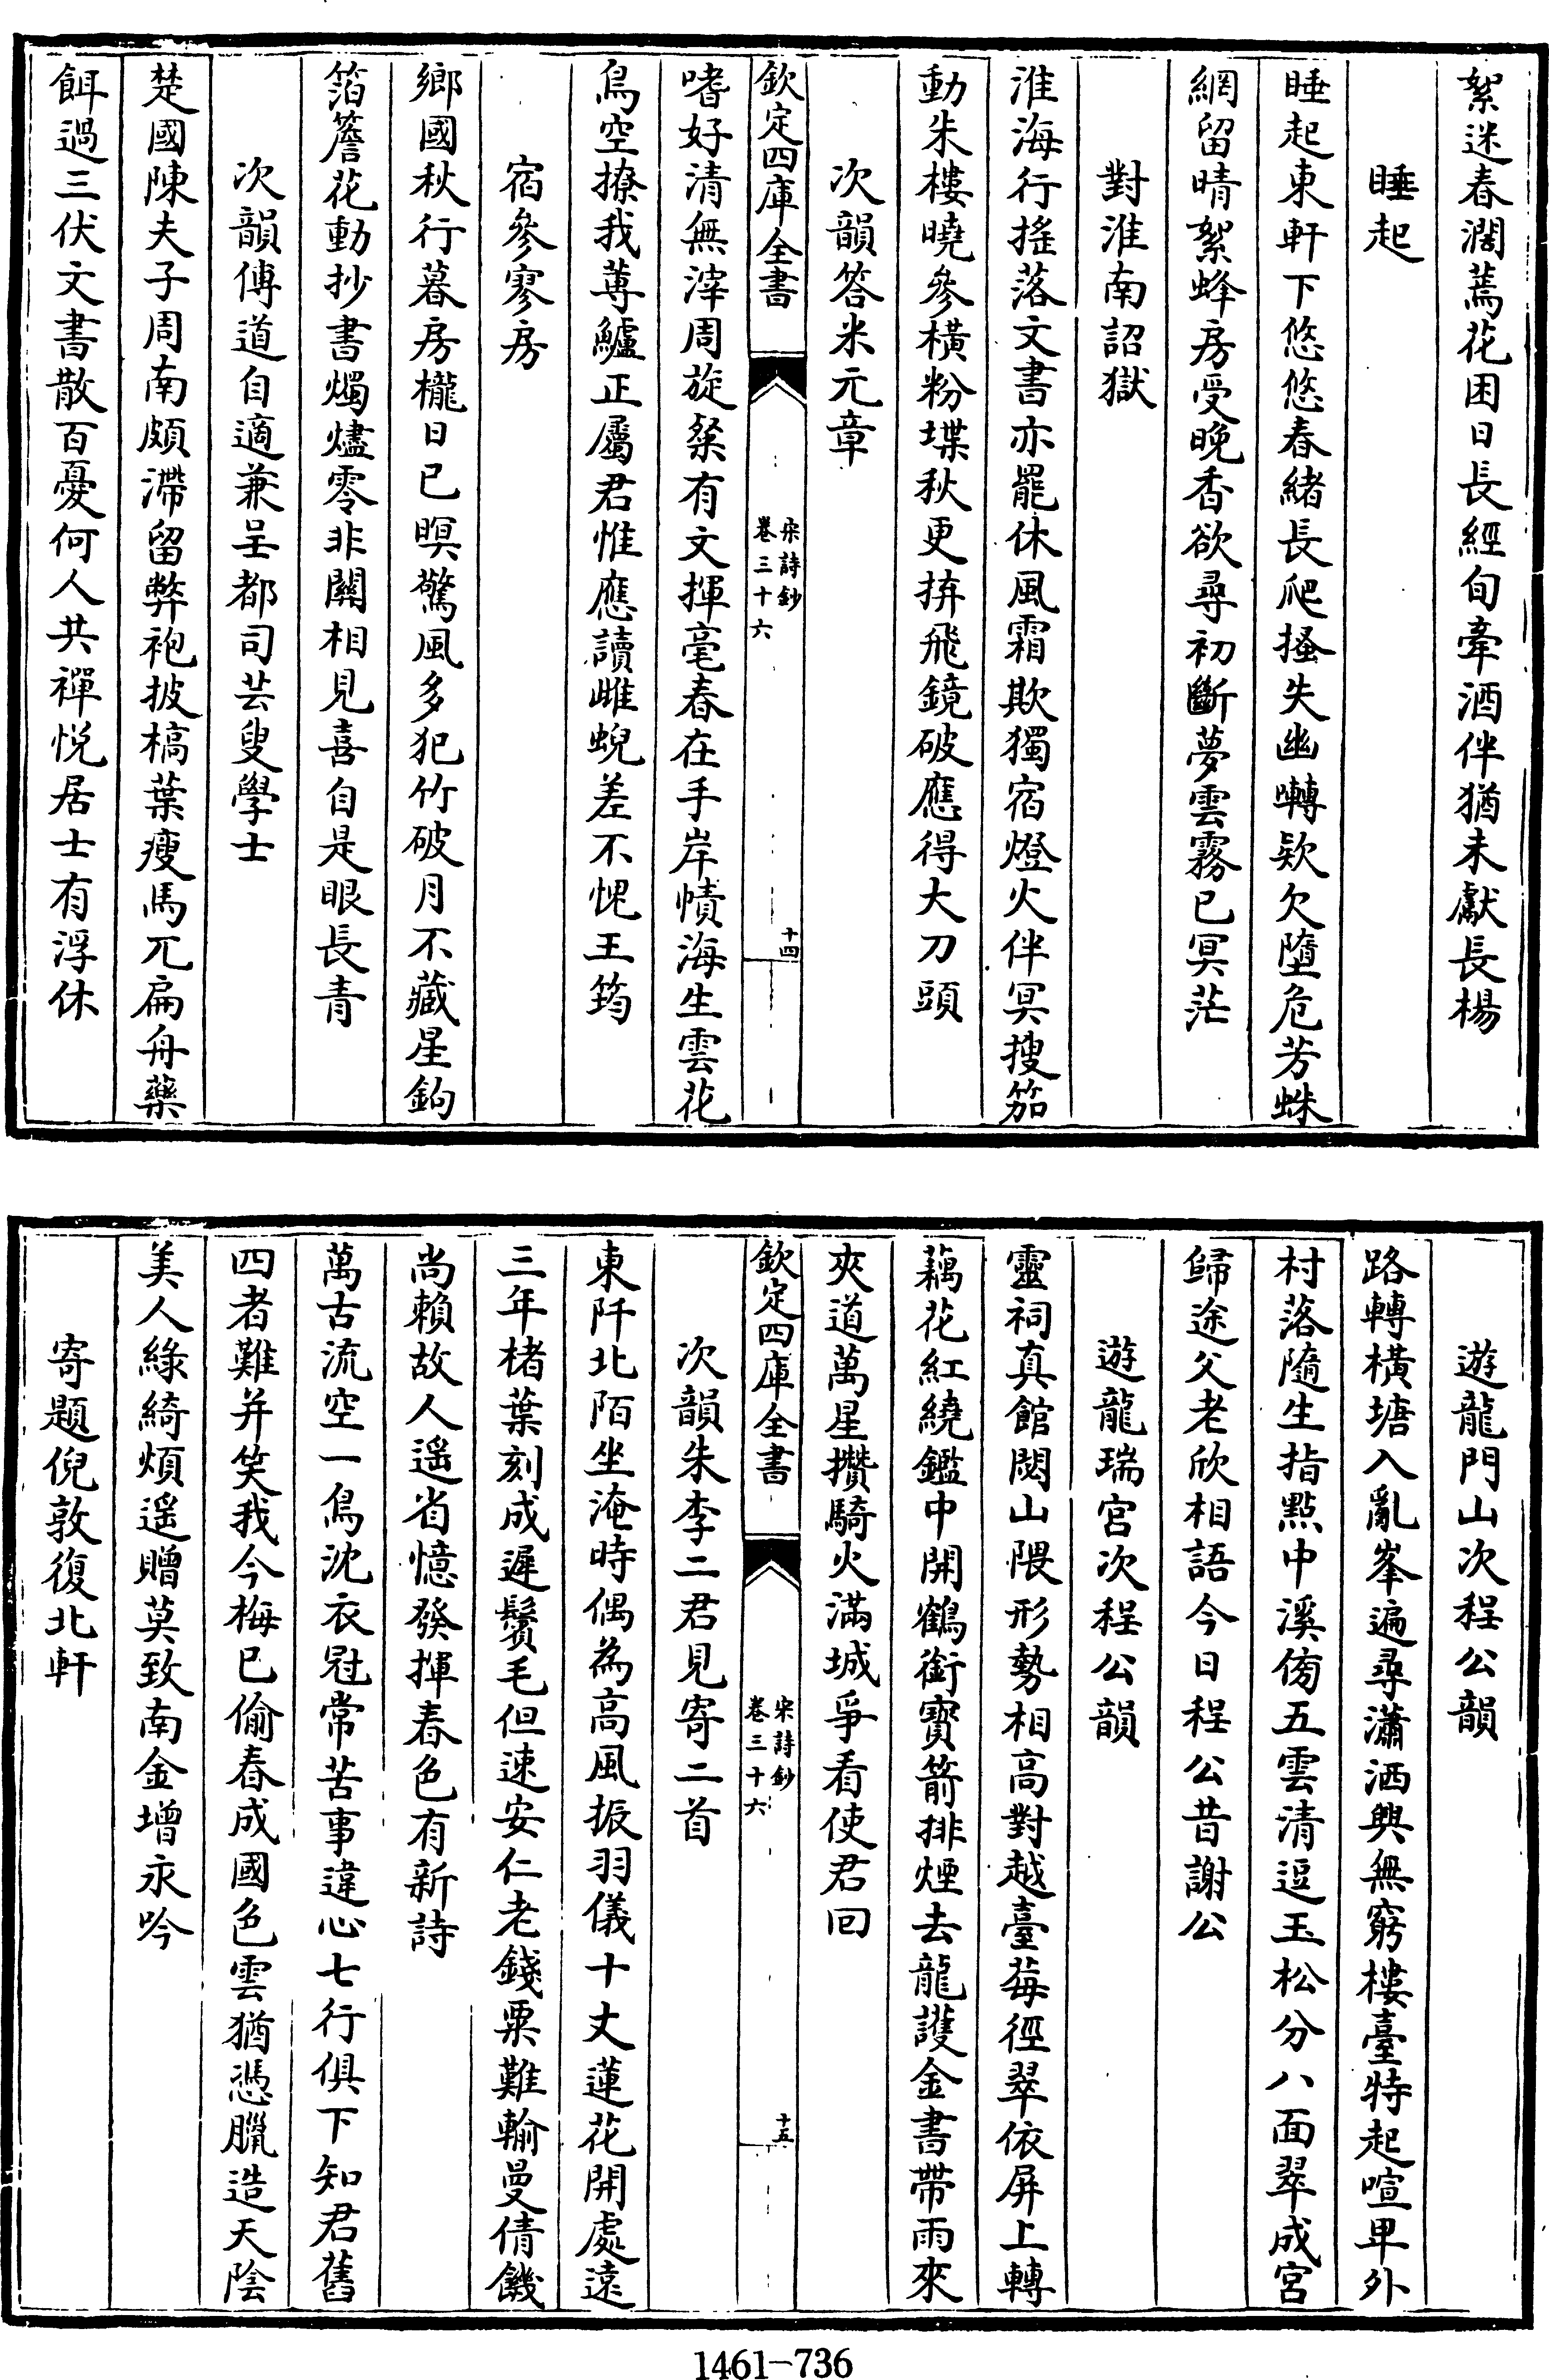 絮迷春濶蔫花困日長經旬牽酒伴猶未獻長楊
睡起
睡起東軒下悠悠春緒長爬搔失幽囀欵欠墮危芳蛛
網留晴絮蜂房受晚香欲尋初斷夢雲霧已冥茫
對淮南詔獄
淮海行搖落文書亦罷休風霜欺獨宿燈火伴冥搜笳
動朱樓曉參橫粉堞秋更拚飛鏡破應得大刀頭
次韻答米元章
欽定四庫全書
宋詩鈔
卷三十六
十四
嗜好清無滓周旋粲有文揮毫春在手岸幘海生雲花
鳥空撩我蓴鱸正屬君惟應讀雌蜺差不愧王筠
宿參寥房
鄉國秋行暮房櫳日已暝驚風多犯竹破月不藏星鈎
箔簷花動抄書燭燼零非關相見喜自是眼長青
次韻傅道自適兼呈都司芸叟學士
楚國陳夫子周南頗滯留弊袍披槁葉瘦馬兀扁舟藥
餌過三伏文書散百憂何人共禪悅居士有浮休
遊龍門山次程公韻
路轉橫塘入亂峯遍尋瀟洒興無窮樓臺特起喧卑外
村落隨生指點中溪傍五雲清逗玉松分八面翠成宮
歸途父老欣相語今日程公昔謝公
遊龍瑞宮次程公韻
靈祠真館閟山隈形勢相高對越臺莓徑翠依屏上轉
藕花紅繞鑑中開鶴銜寶箭排煙去龍護金書帶雨來
夾道萬星攢騎火滿城爭看使君回
欽定四庫全書
宋詩鈔
卷三十六
十五
次韻朱李二君見寄二首
東阡北陌坐淹時偶為高風振羽儀十丈蓮花開處遠
三年楮葉刻成遲鬢毛但速安仁老錢粟難輸曼倩饑
尚賴故人遥省憶發揮春色有新詩
萬古流空一鳥沈衣冠常苦事違心七行俱下知君舊
四者難并笑我今梅已偷春成國色雲猶憑臘造天陰
美人綠綺煩遥贈莫致南金增永吟
寄題倪敦復北軒
1461-736